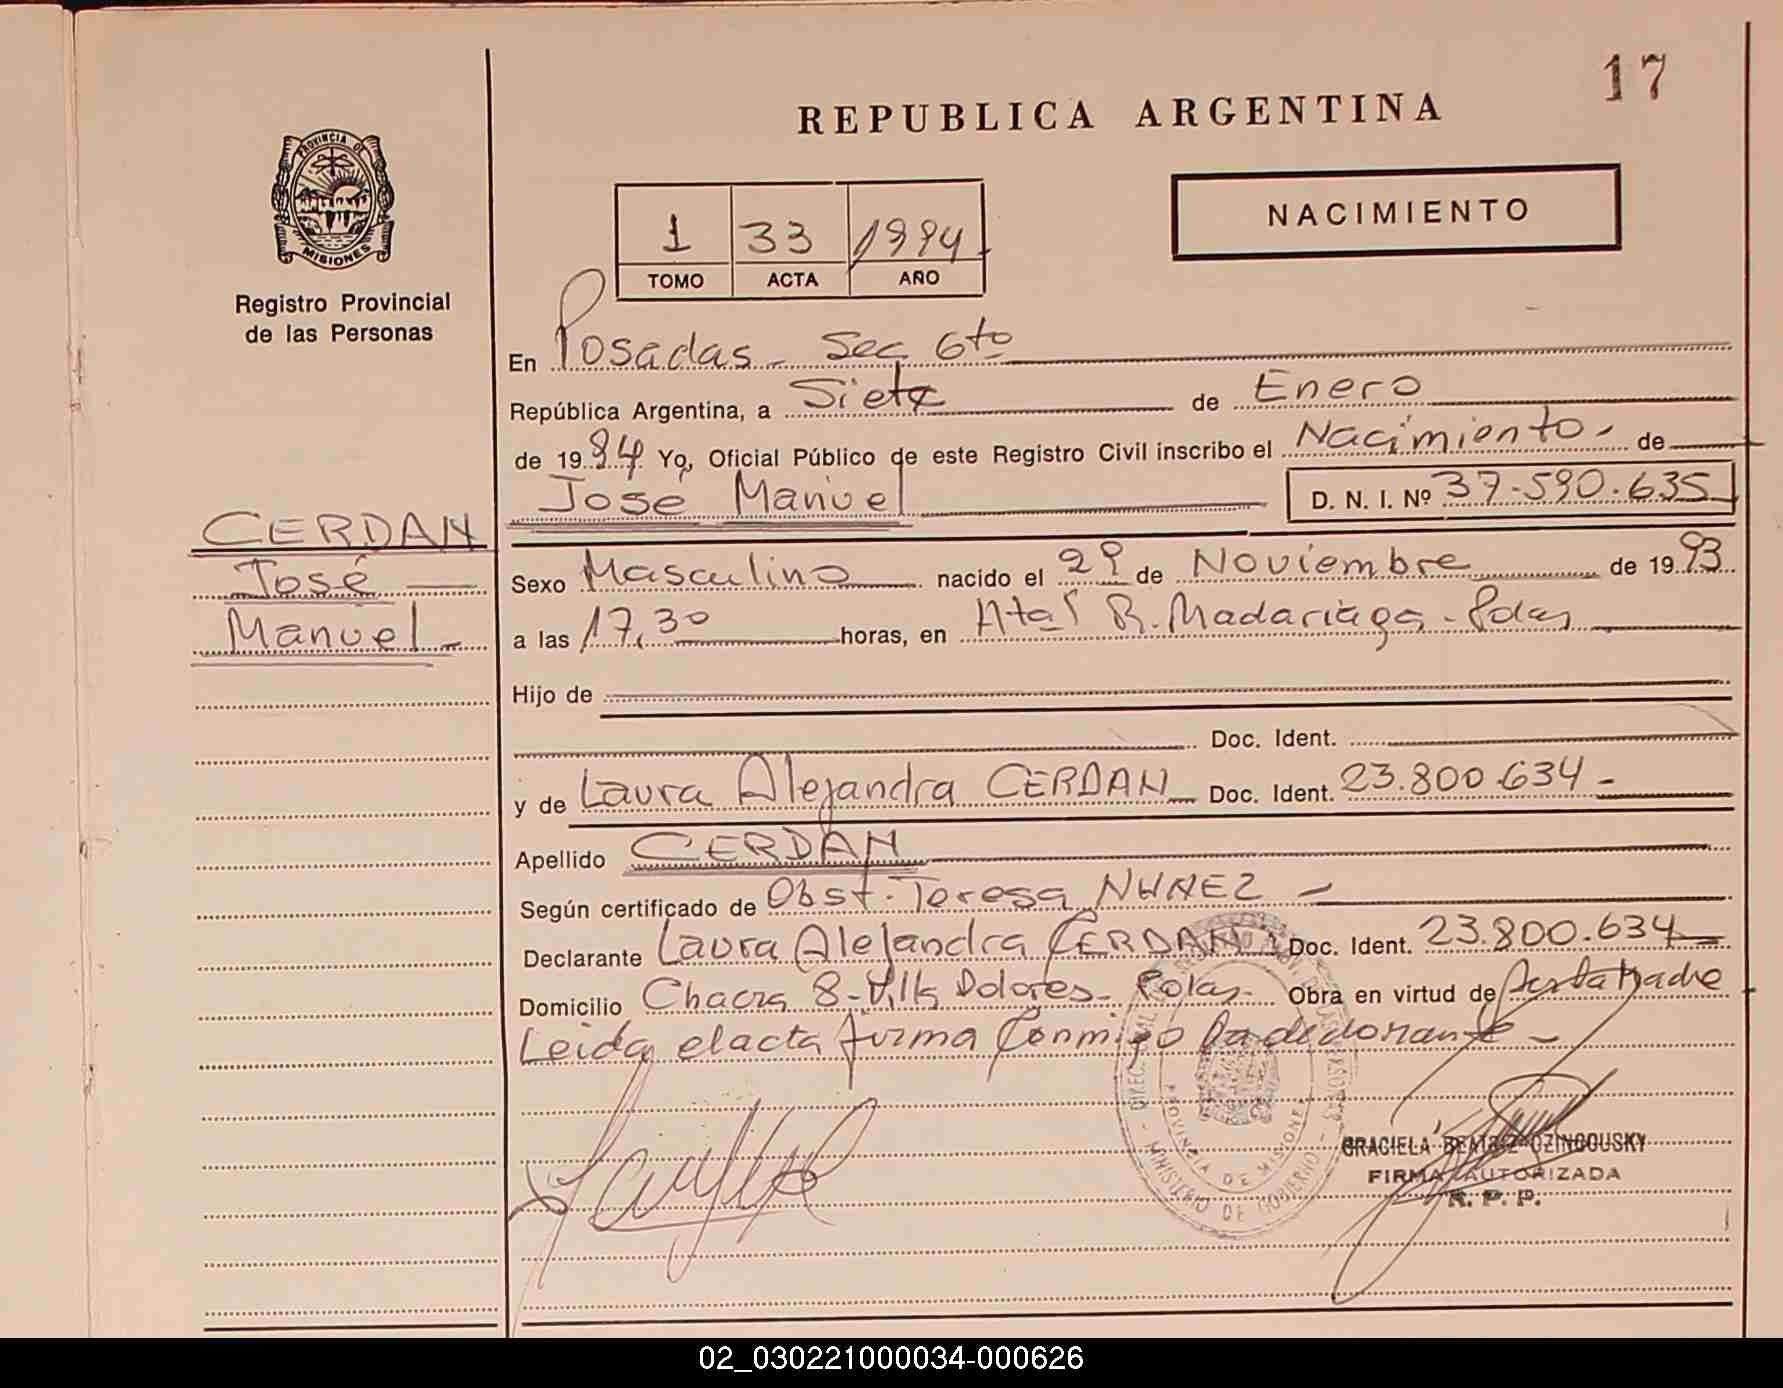 17
REPUBLICA ARGENTINA
PROVINCIA DE
MISIONES
Registro Provincial
de las Personas
NACIMIENTO
1 33 1994
TOMO ACTA AÑO
En Posadas - Sec 6to
República Argentina, a Siete de Enero
de 1994 Yo, Oficial Público de este Registro Civil inscribo el Nacimiento - de
José Manuel D. N. I. Nº 37.590.635
CERDAN
José
Manuel -
Sexo Masculino nacido el 29 de Noviembre de 1993
a las 17,30 horas, en Htal R. Madariaga - Pdas
Hijo de
Doc. Ident.
y de Laura Alejandra CERDAN Doc. Ident. 23.800.634 -
Apellido CERDAN
Según certificado de Obst. Teresa NUÑEZ -
Declarante Laura Alejandra CERDAN Doc. Ident. 23.800.634
Domicilio Chacra 8 - Villa Dolores - Pdas - Obra en virtud de Madre
Leida el acta firma Conmigo la declarante -
PROVINCIA DE MISIONES
MINISTERIO DE GOBIERNO
GRACIELA BEATRIZ OZINGOUSKY
FIRMA AUTORIZADA
R. P. P.
02_030221000034-000626